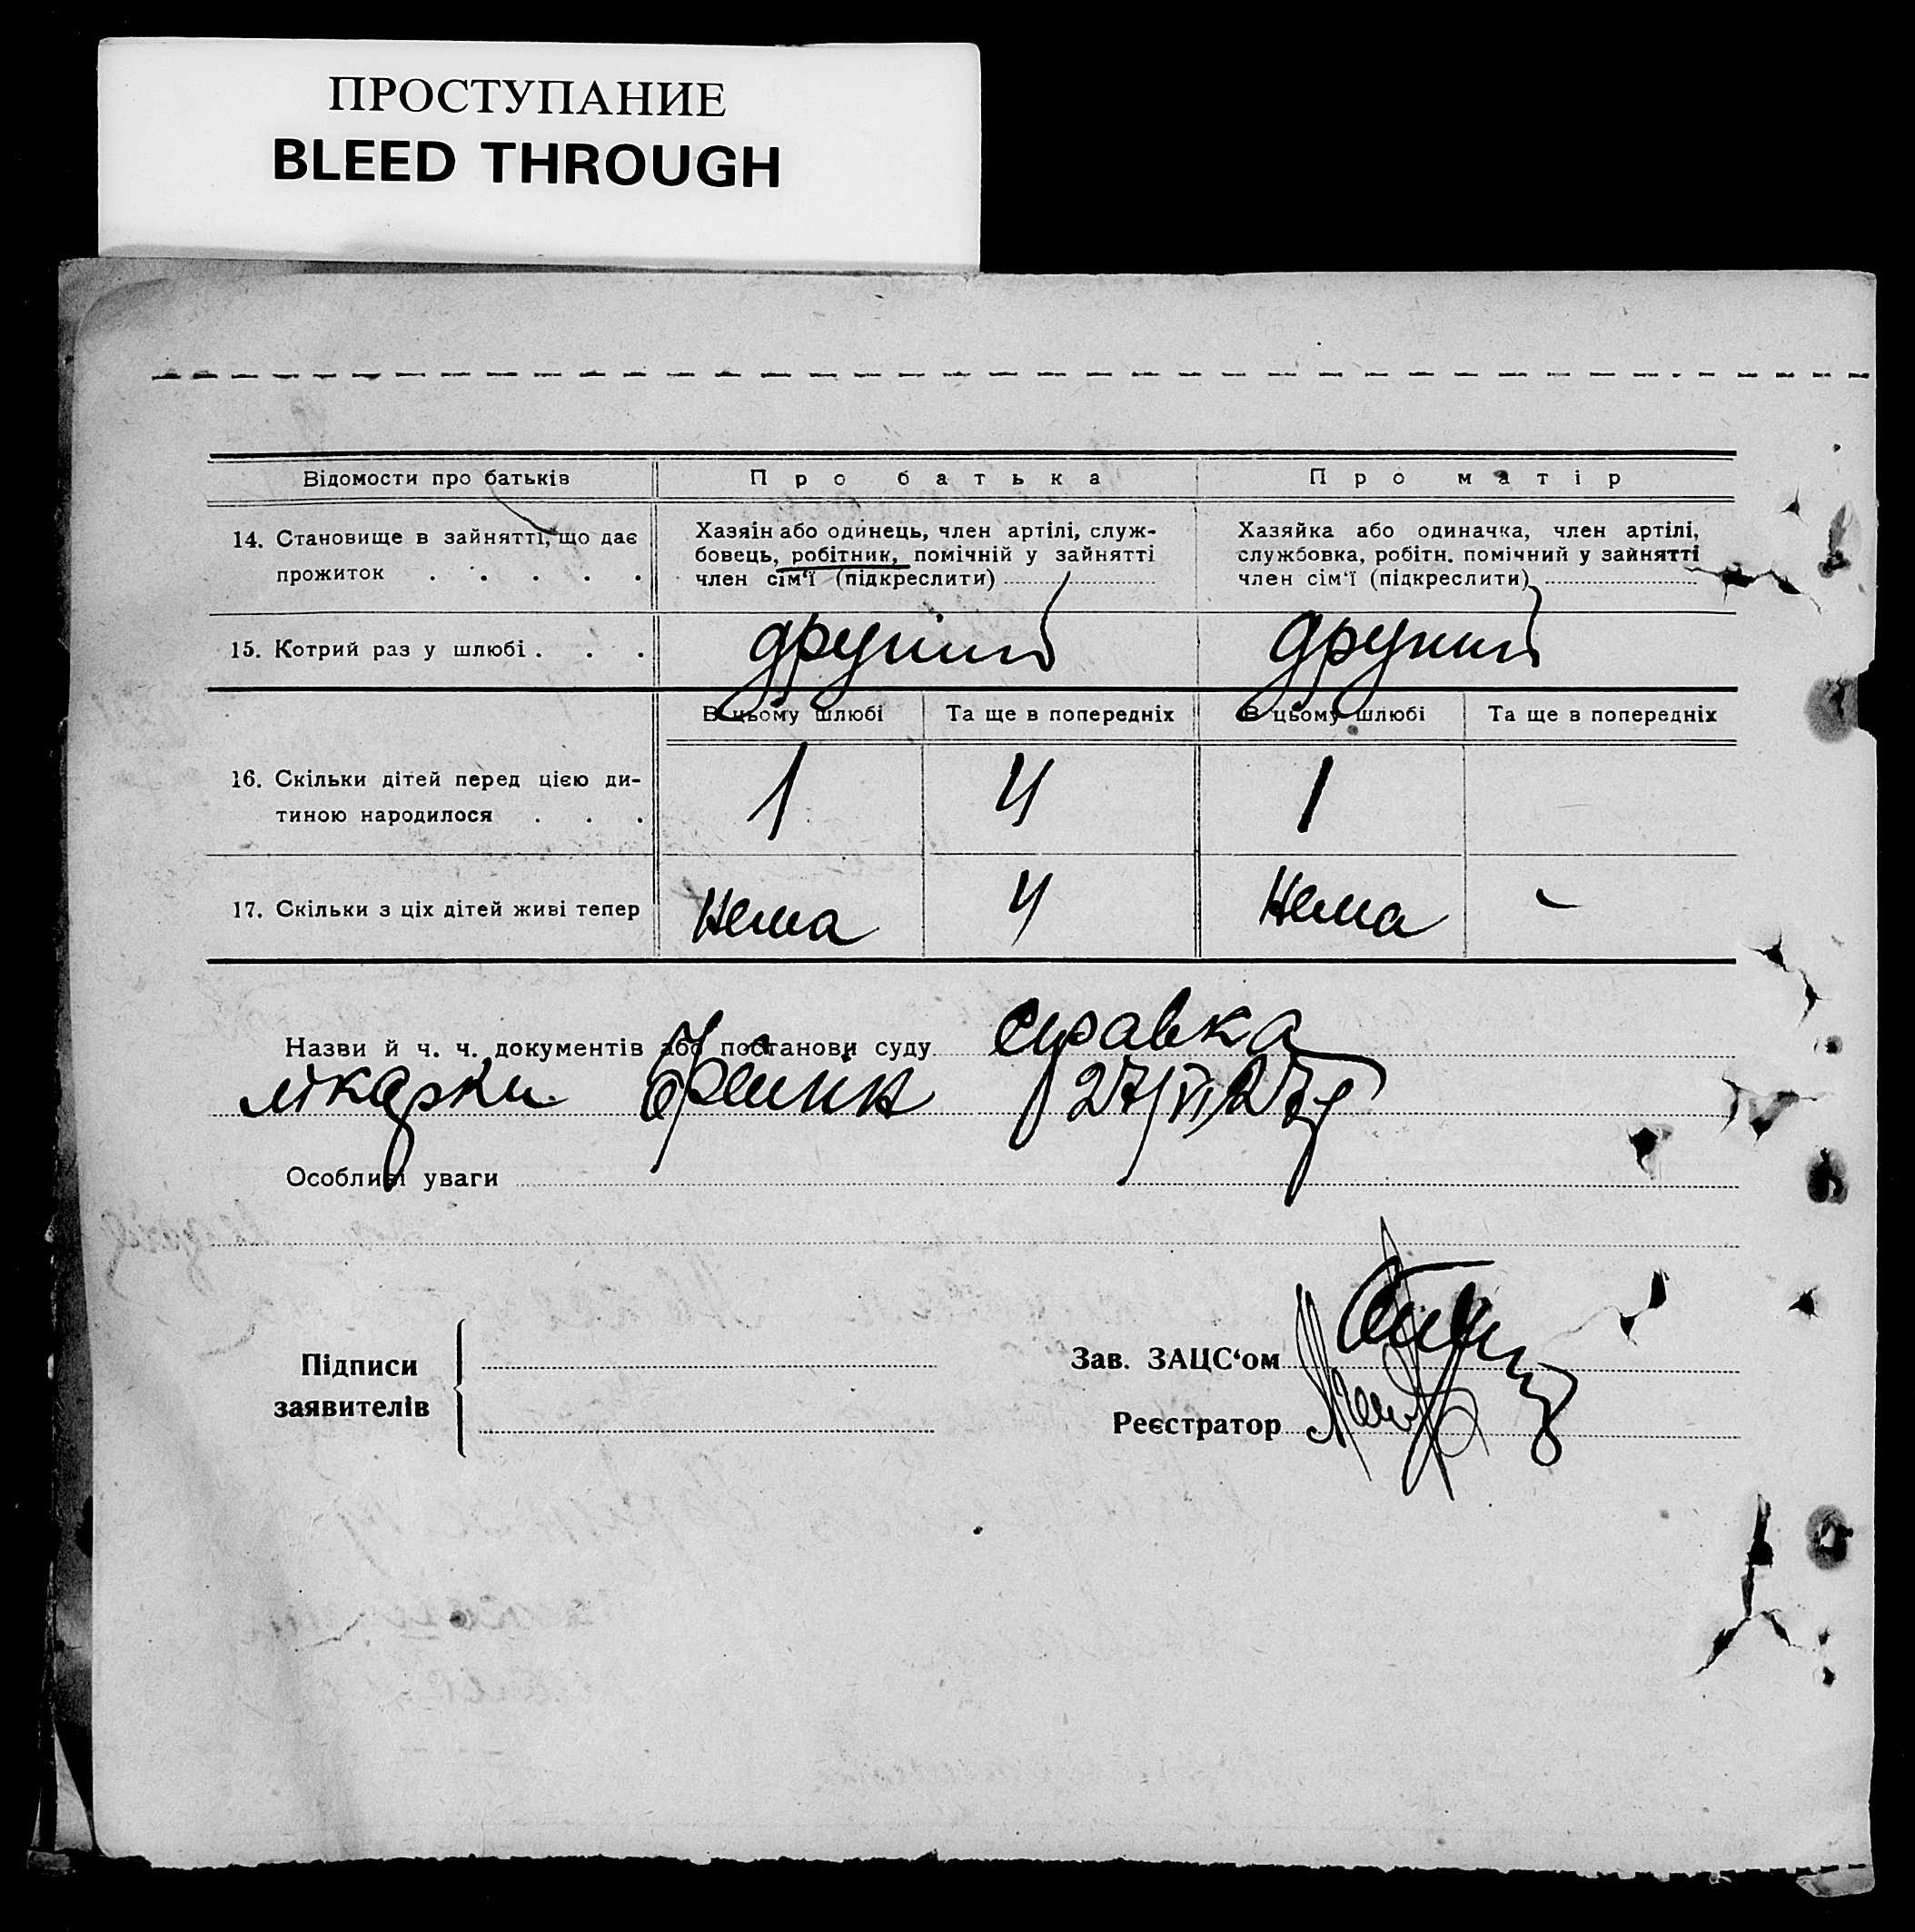 ПРОСТУПАНИЕ
BLEED THROUGH
Відомости про батьків
Про батька
Про матір
14. Становище в зайнятті, що дає
прожиток . . . . .
Хазяїн або одинець, член артілі, служ-
бовець, робітник, помічній у зайнятті
член сім'ї (підкреслити)
Хазяйка або одиначка, член артілі,
службовка, робітн. помічний у зайнятті
член сім'ї (підкреслити)
15. Котрий раз у шлюбі . . .
другий
другий
В цьому шлюбі
Та ще в попередніх
В цьому шлюбі
Та ще в попередніх
16. Скільки дітей перед цією ди-
тиною народилося . . .
1
4
1
17. Скільки з ціх дітей живі тепер
Нема
4
Нема
-
Назви й ч. ч. документів або постанови суду справка
лікарки 27/VI 27р
Особливі уваги
Підписи
заявителів
Зав. ЗАЦС'ом
Реєстратор